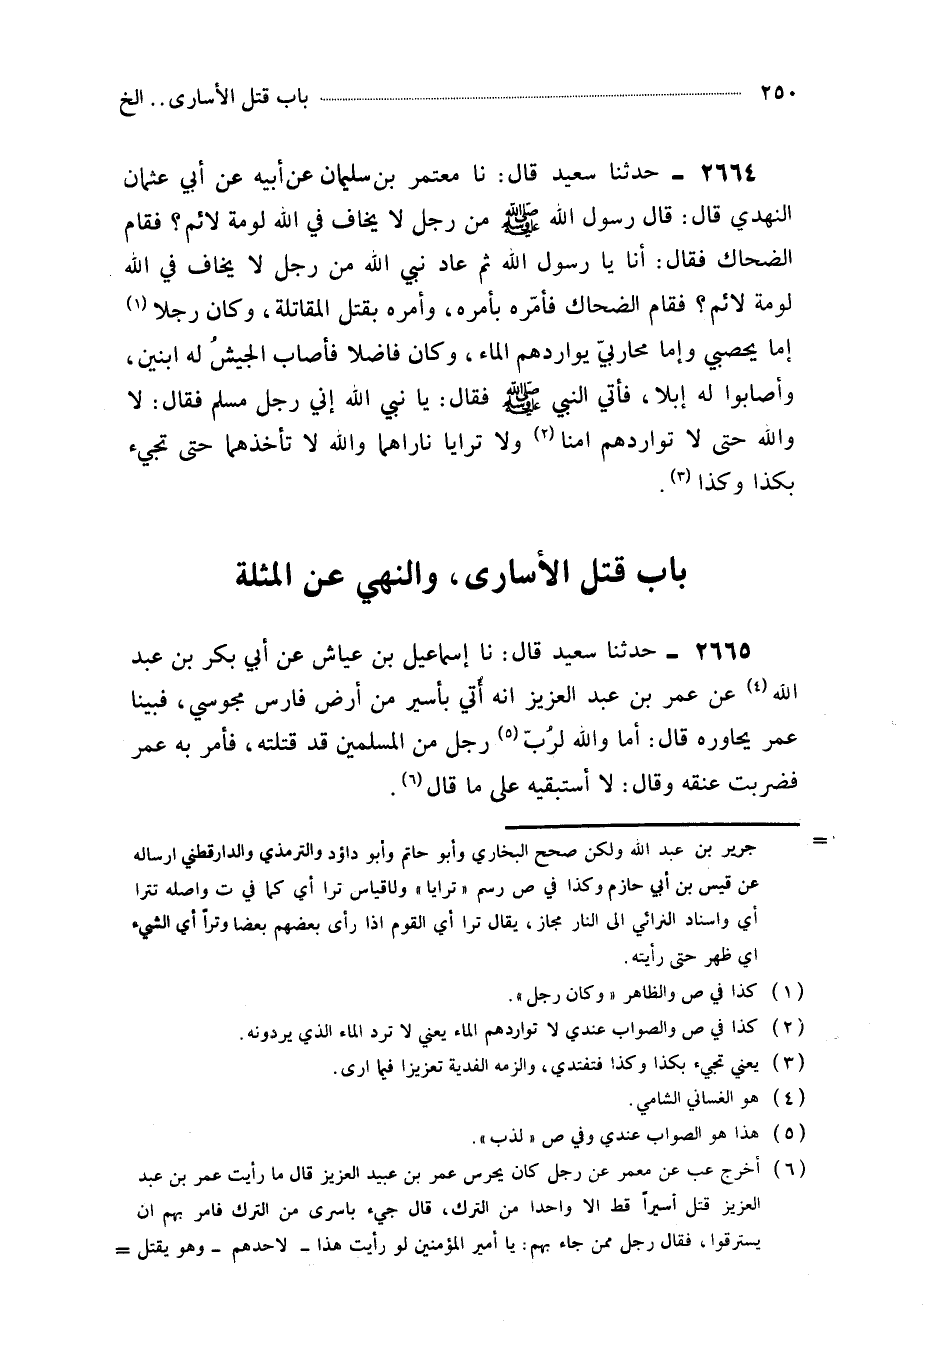 ٢٥٠ باب قتل الأسارى . . الخ
٢٦٦٤ ـ حدثنا سعيد قال: نا معتمر بن سليمان عن أبيه عن أبي عثمان
النهدي قال: قال رسول الله ﷺ من رجل لا يخاف في الله لومة لائم؟ فقام
الضحاك فقال: أنا يا رسول الله ثم عاد نبي الله من رجل لا يخاف في الله
لومة لائم؟ فقام الضحاك فأمّره بأمره، وأمره بقتل المقاتلة، وكان رجلا (١)
إما يحصبي وإما محاربيّ يواردهم الماء، وكان فاضلا فأصاب الجيشُ له ابنين،
وأصابوا له إبلا، فأتي النبي ﷺ فقال: يا نبي الله إني رجل مسلم فقال: لا
والله حتى لا تواردهم امنا (٢) ولا ترايا ناراهما والله لا تأخذهما حتى تجيء
بكذا وكذا (٣).
باب قتل الأسارى، والنهي عن المثلة
٢٦٦٥ ـ حدثنا سعيد قال: نا إسماعيل بن عياش عن أبي بكر بن عبد
الله (٤) عن عمر بن عبد العزيز انه أُتي بأسير من أرض فارس مجوسي، فبينا
عمر يحاوره قال: أما والله لرُبّ (٥) رجل من المسلمين قد قتلته، فأمر به عمر
فضربت عنقه وقال: لا أستبقيه على ما قال (٦).
= جرير بن عبد الله ولكن صحح البخاري وأبو حاتم وأبو داؤد والترمذي والدارقطني ارساله
عن قيس بن أبي حازم وكذا في ص رسم « ترايا » ولاقياس ترا أي كما في ت واصله تترا
أي واسناد الترائي الى النار مجاز، يقال ترا أي القوم اذا رأى بعضهم بعضا وتراً أي الشيء
اي ظهر حتى رأيته.
(١) كذا في ص والظاهر « وكان رجل ».
(٢) كذا في ص والصواب عندي لا تواردهم الماء يعني لا ترد الماء الذي يردونه.
(٣) يعني تجيء بكذا وكذا فتفتدي، والزمه الفدية تعزيزا فيما ارى.
(٤) هو الغساني الشامي.
(٥) هذا هو الصواب عندي وفي ص « لذب ».
(٦) أخرج عب عن معمر عن رجل كان يحرس عمر بن عبيد العزيز قال ما رأيت عمر بن عبد
العزيز قتل أسيراً قط الا واحدا من الترك، قال جيء باسرى من الترك فامر بهم ان
يسترقوا، فقال رجل ممن جاء بهم: يا أمير المؤمنين لو رأيت هذا ـ لاحدهم ـ وهو يقتل =